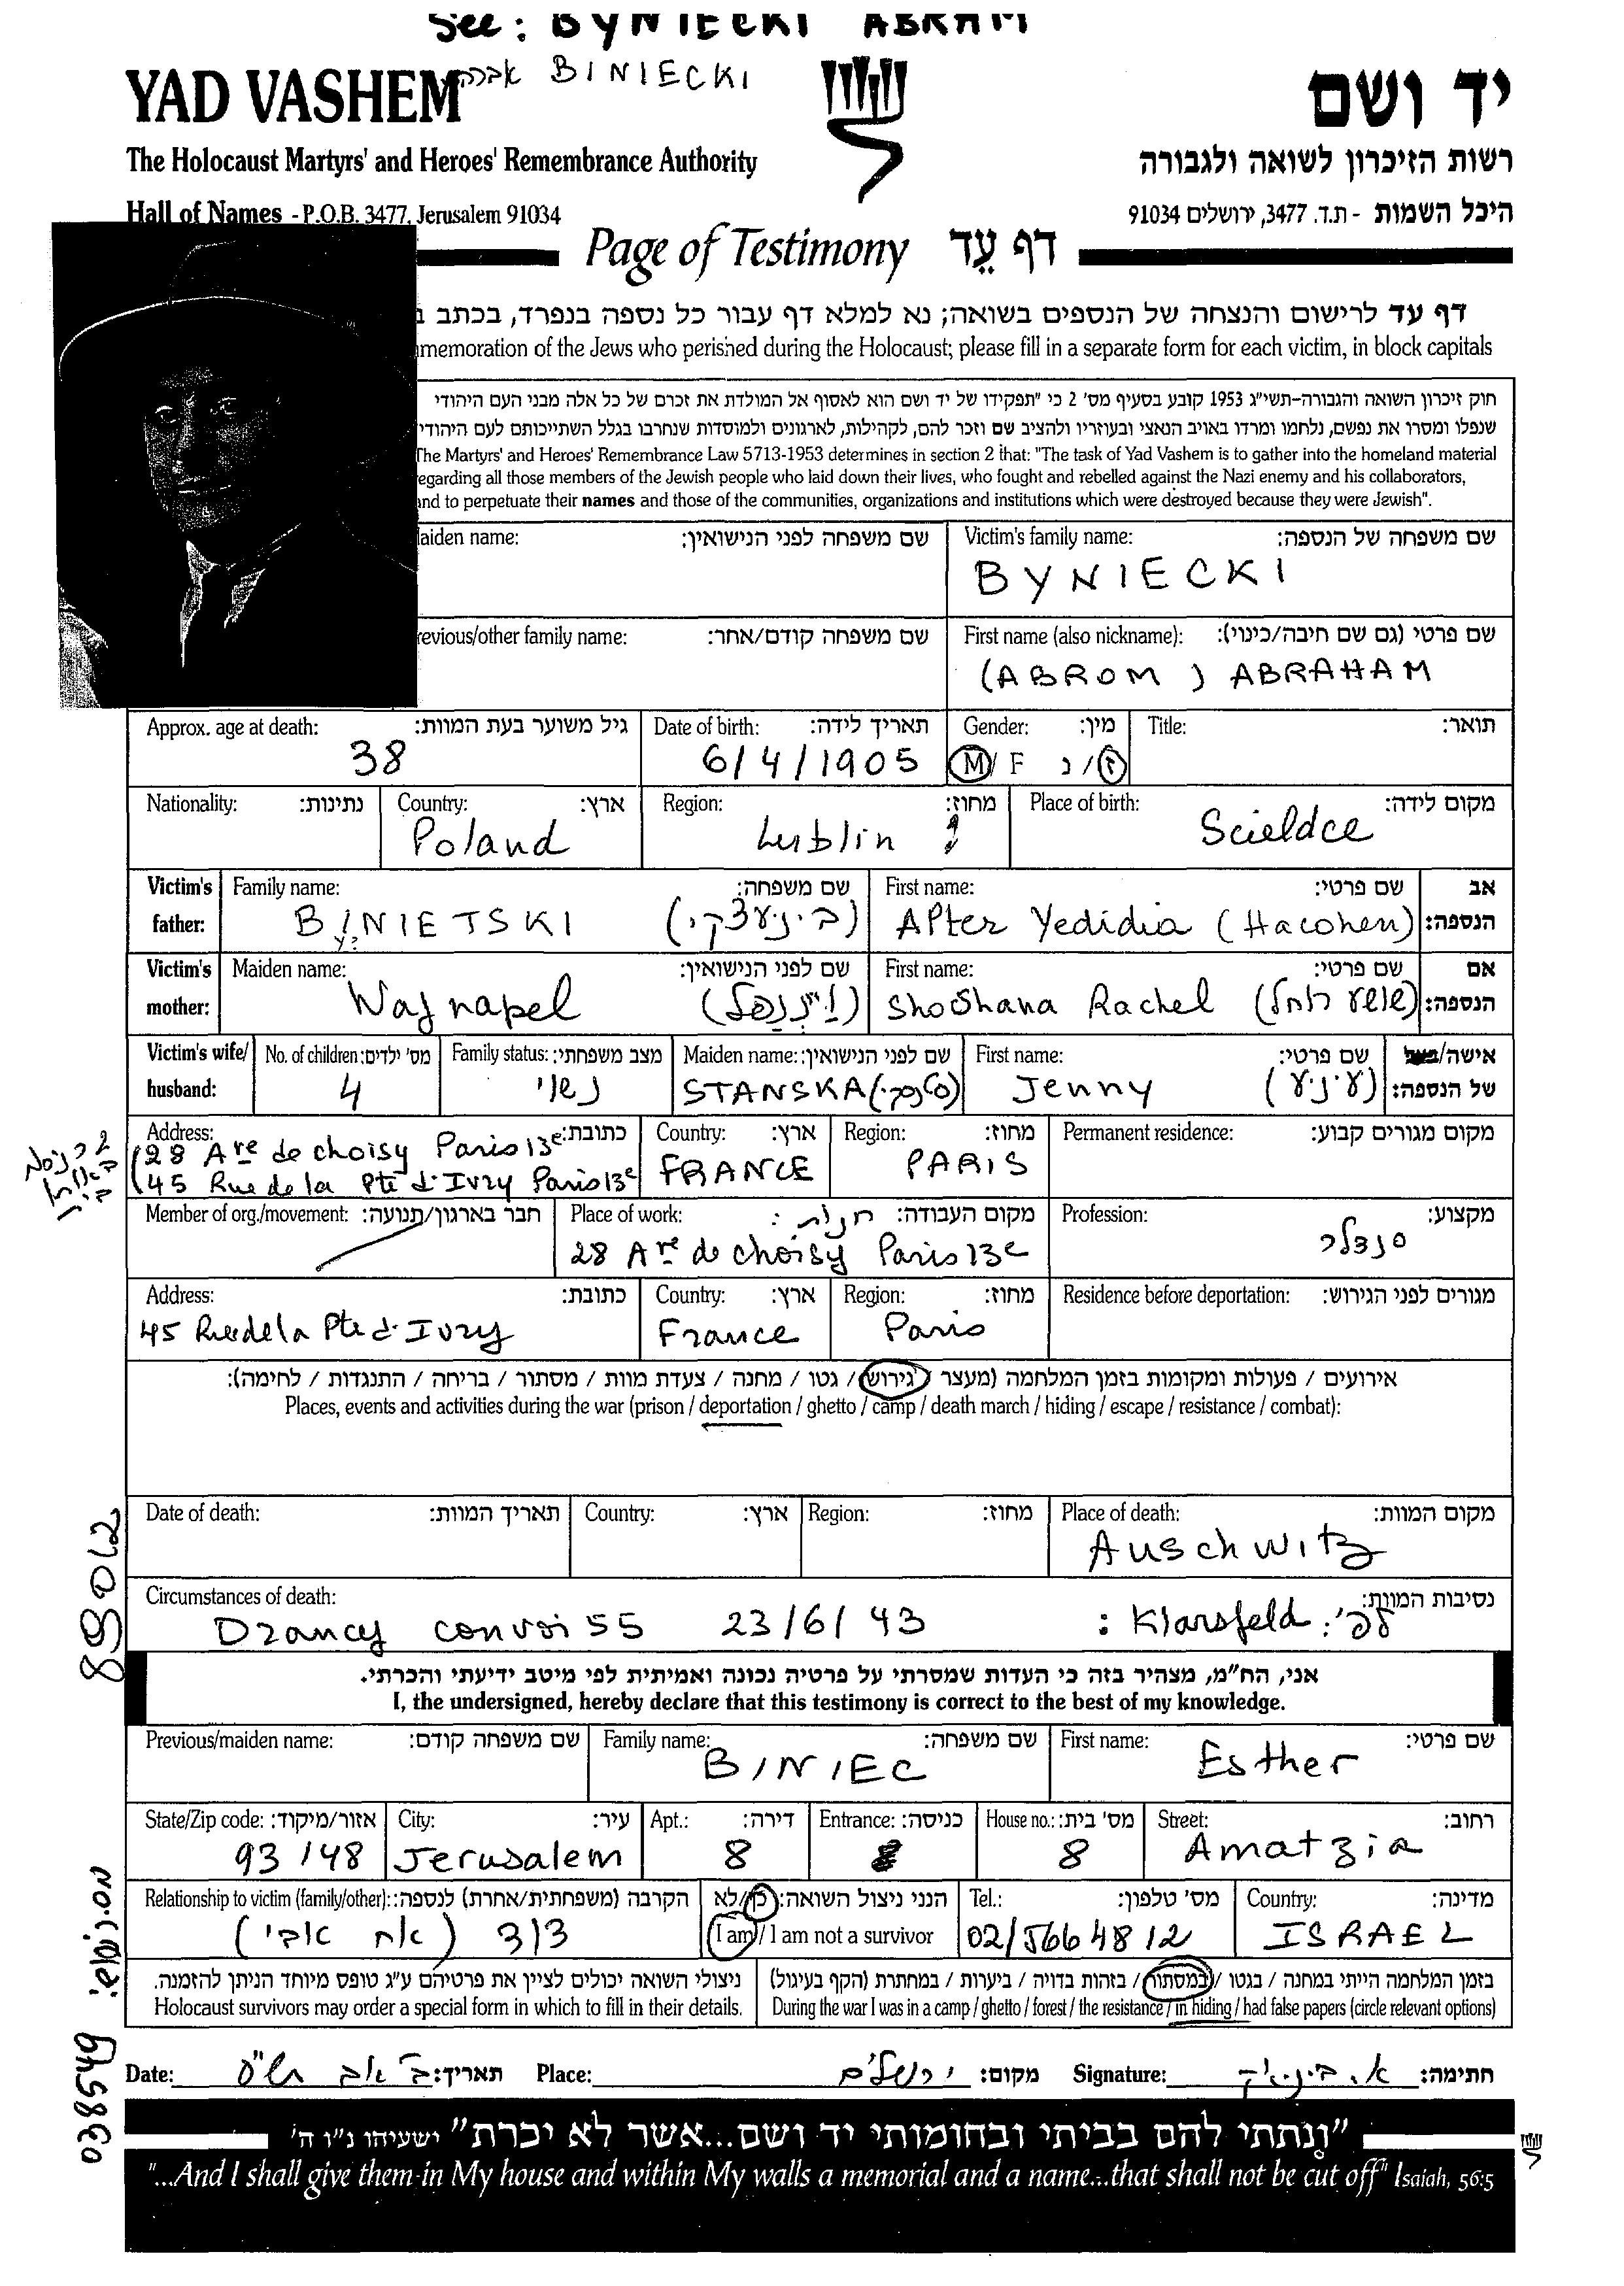 See: BYNIECKI ABRAM
BINIECKI
YAD VASHEM
יד ושם
The Holocaust Martyrs' and Heroes' Remembrance Authority
רשות הזיכרון לשואה ולגבורה
Hall of Names - P.O.B. 3477, Jerusalem 91034
היכל השמות - ת.ד. 3477, ירושלים 91034
Page of Testimony דף עֵד
דף עד לרישום והנצחה של הנספים בשואה; נא למלא דף עבור כל נספה בנפרד, בכתב
memoration of the Jews who perished during the Holocaust; please fill in a separate form for each victim, in block capitals
חוק זיכרון השואה והגבורה-תשי"ג 1953 קובע בסעיף מס' 2 כי "תפקידו של יד ושם הוא לאסוף אל המולדת את זכרם של כל אלה מבני העם היהודי
שנפלו ומסרו את נפשם, נלחמו ומרדו באויב הנאצי ובעוזריו ולהציב שם וזכר להם, לקהילות, לארגונים ולמוסדות שנחרבו בגלל השתייכותם לעם היהודי
The Martyrs' and Heroes' Remembrance Law 5713-1953 determines in section 2 that: "The task of Yad Vashem is to gather into the homeland material
egarding all those members of the Jewish people who laid down their lives, who fought and rebelled against the Nazi enemy and his collaborators,
and to perpetuate their names and those of the communities, organizations and institutions which were destroyed because they were Jewish".
aiden name: שם משפחה לפני הנישואין: Victim's family name: שם משפחה של הנספה:
BYNIECKI
revious/other family name: שם משפחה קודם/אחר: First name (also nickname): שם פרטי (גם שם חיבה/כינוי):
(ABROM) ABRAHAM
Approx. age at death: גיל משוער בעת המוות: Date of birth: תאריך לידה: Gender: מין: Title: תואר:
38 6/4/1905 M/F ז/נ
Nationality: נתינות: Country: ארץ: Region: מחוז: Place of birth: מקום לידה:
Poland Lublin ? Scieldce
Victim's father: Family name: שם משפחה: First name: שם פרטי: אב הנספה:
BINIETSKI (בינעצקי) APter Yedidia (Hacohen)
y?
Victim's mother: Maiden name: שם לפני הנישואין: First name: שם פרטי: אם הנספה:
Wajnapel ShoShana Rachel
Victim's wife/ husband: No. of children: מס' ילדים: Family status: מצב משפחתי: Maiden name: שם לפני הנישואין: First name: שם פרטי: אישה/בעל של הנספה:
4 נשוי STANSKA Jenny (זעני)
Address: כתובת: Country: ארץ: Region: מחוז: Permanent residence: מקום מגורים קבוע:
(28 Are de choisy Paris 13e FRANCE PARIS
(45 Rue de la Pte d'Ivry Paris 13e
Member of org./movement: חבר בארגון/תנועה: Place of work: מקום העבודה: חנות: Profession: מקצוע:
28 Are de choisy Paris 13e סנדלר
Address: כתובת: Country: ארץ: Region: מחוז: Residence before deportation: מגורים לפני הגירוש:
45 Rue de la Pte d'Ivry France Paris
אירועים / פעולות ומקומות בזמן המלחמה (מעצר / גירוש / גטו / מחנה / צעדת מוות / מסתור / בריחה / התנגדות / לחימה):
Places, events and activities during the war (prison / deportation / ghetto / camp / death march / hiding / escape / resistance / combat):
Date of death: תאריך המוות: Country: ארץ: Region: מחוז: Place of death: מקום המוות:
Auschwitz
Circumstances of death: נסיבות המוות:
Drancy convoi 55 23/6/43 : Klarsfeld לפי:
אני, הח"מ, מצהיר בזה כי העדות שמסרתי על פרטיה נכונה ואמיתית לפי מיטב ידיעתי והכרתי.
I, the undersigned, hereby declare that this testimony is correct to the best of my knowledge.
Previous/maiden name: שם משפחה קודם: Family name: שם משפחה: First name: שם פרטי:
BINIEC Esther
State/Zip code: אזור/מיקוד: City: עיר: Apt.: דירה: Entrance: כניסה: House no.: מס' בית: Street: רחוב:
93148 Jerusalem 8 8 Amatzia
Relationship to victim (family/other): הקרבה (משפחתית/אחרת) לנספה: הנני ניצול השואה: כן/לא Tel.: מס' טלפון: Country: מדינה:
דוד (אח אבי) I am / I am not a survivor 02/5664812 ISRAEL
ניצולי השואה יכולים לציין את פרטיהם ע"ג טופס מיוחד הניתן להזמנה. בזמן המלחמה הייתי במחנה / בגטו / במסתור / בזהות בדויה / ביערות / במחתרת (הקף בעיגול)
Holocaust survivors may order a special form in which to fill in their details. During the war I was in a camp / ghetto / forest / the resistance / in hiding / had false papers (circle relevant options)
Date: ב' אב תש"ס תאריך: Place: ירושלים מקום: Signature: חתימה:
"ונתתי להם בביתי ובחומותי יד ושם...אשר לא יכרת" ישעיהו נ"ו ה'
"...And I shall give them in My house and within My walls a memorial and a name...that shall not be cut off" Isaiah, 56:5
038549